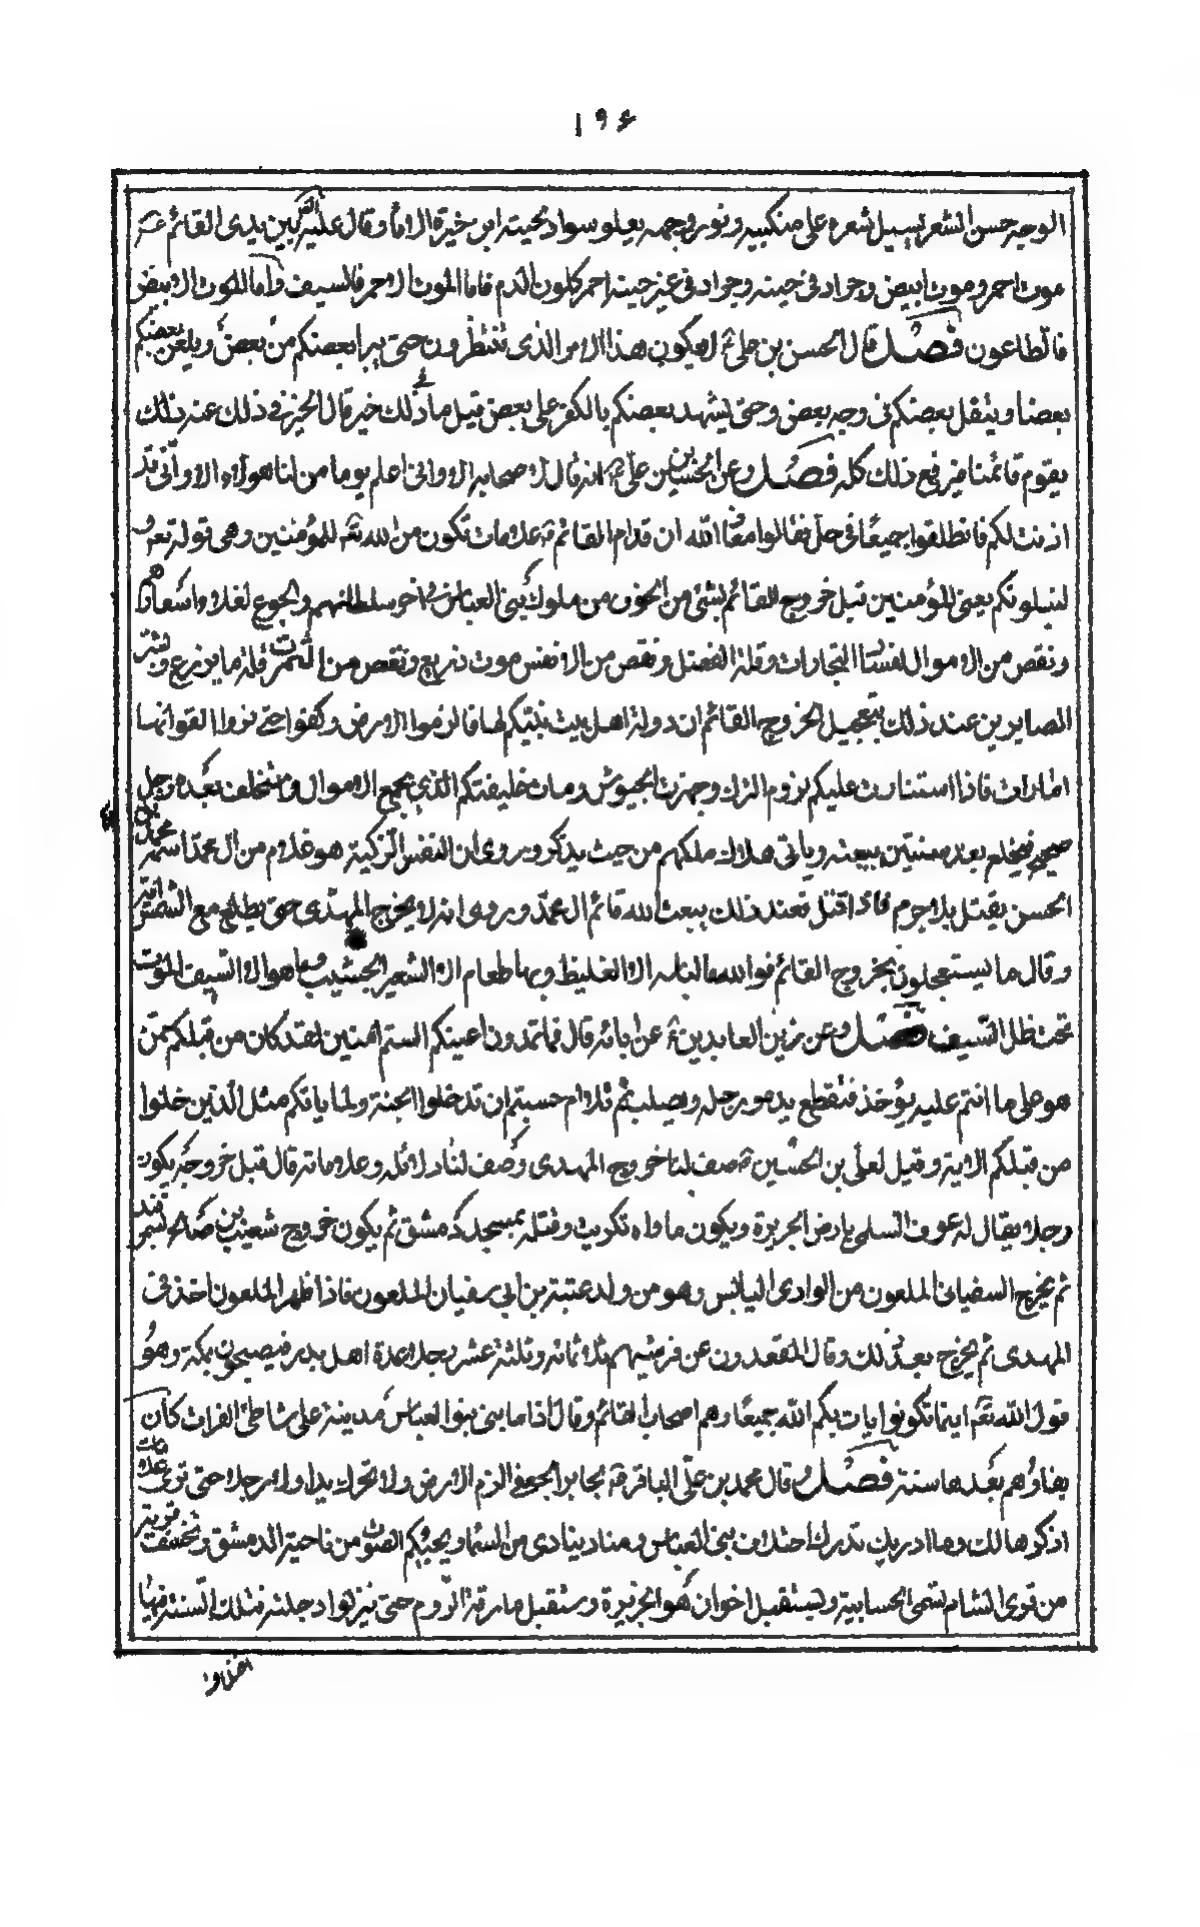 ١٩۶
الوجه حسن الشعر يسيل شعره على منكبيه ونور وجهه يعلو سواد لحيته ابن خيرة الاماء وقال عليه السلم بين يدى القائم عه
موت احمر وموت ابيض وجراد فى حينه وجراد فى غير حينه احمر كلون الدم فاما الموت الاحمر فالسيف واما الموت الابيض
فالطاعون فصل قال الحسن بن على ع لا يكون هذا الامر الذى تنتظرون حتى يبرا بعضكم من بعض ويلعن بعضكم
بعضا ويتفل بعضكم فى وجه بعض وحتى يشهد بعضكم بالكفر على بعض قيل ما فى ذلك خير قال الخير فى ذلك عند ذلك
يقوم قائمنا فيرفع ذلك كله فصل وعن الحسين بن على ع انه قال لاصحابه الا وانى اعلم يوما من لنا هؤلاء الا وانى قد
اذنت لكم فانطلقوا جميعا فى حل فقالوا معاذ الله ان قدام القائم ع علامات تكون من الله تعه للمؤمنين وهى قوله تعه
لنبلونكم يعنى المؤمنين قبل خروج القائم بشئ من الخوف من ملوك بنى العباس فى اخر سلطانهم والجوع لغلاء اسعارهم
ونقص من الاموال لفساد التجارات وقلة الفضل ونقص من الانفس موت ذريع ونقص من الثمرات قلة ما يزرع وبشر
الصابرين عند ذلك بتعجيل الخروج القائم ان دولة اهل بيت نبيكم لها فالزموا الارض وكفوا حتى تروا القوا نها
امارات فاذا استنارت عليكم بروم الترك وجهزت الجيوش ومات خليفتكم الذى يجمع الاموال واستخلف بعده رجل
صحيح فيخلع بعد سنتين ببيعته وياتى هلاك ملكهم من حيث بدئ وروى ان النفس الزكية هو غلام من ال محمد اسمه محمد بن
الحسن يقتل بلا جرم فاذا قتل فعند ذلك يبعث الله قائم ال محمد وروى انه لا يخرج المهدى حتى يطلع مع الشمس اية
وقال ما يستعجلون بخروج القائم فوالله ما لباسه الا الغليظ وبها طعام الا الشعير الجشيب وما هو الا السيف والموت
تحت ظل السيف فصل وعن زين العابدين ع عن ابائه قال فما تمدون اعينكم الستم امنين لقد كان من قبلكم ممن
هو على ما انتم عليه يؤخذ فتقطع يده ورجله ويصلب ثم تلا ام حسبتم ان تدخلوا الجنة ولما ياتكم مثل الذين خلوا
من قبلكم الاية وقيل لعلى بن الحسين ع صف لنا خروج المهدى وصف لنا دلائله وعلاماته قال قبل خروجه يكون
رجل يقال له عوف السلمى بارض الجزيرة ويكون ماواه تكريت وقتله بمسجد دمشق ثم يكون خروج شعيب بن صالح بسمرقند
ثم يخرج السفيانى الملعون من الوادى اليابس وهو من ولد عتبة بن ابى سفيان الملعون فاذا ظهر الملعون اخذ فى
المهدى ثم يخرج بعد ذلك وقال المفقدون عن فرشهم ثلاثمائة وثلثة عشر رجلا عدة اهل بدر فيصبحون بمكة وهو
قول الله تعه اينما تكونوا يات بكم الله جميعا وهم اصحاب القائم وقال اذا ما بنى بنوا العباس مدينة على شاطئ الفرات كان
بقاؤهم بعدها سنة فصل وقال محمد بن على الباقر ع لجابر الجعفى الزم الارض ولا تحرك يدا ولا رجلا حتى ترى علامات
اذكرها لك وما ادريك تدرك اختلاف بنى العباس ومناد ينادى من السماء ويجيئكم الصوت من ناحية الدمشق وتخسف قرية
من قرى الشام تسمى الجسابية وليستقبل اخوان هو الجزيرة وستقبل مارقة الروم حتى تنزلوا دجلته فتلك السنة فيها
اختلاف